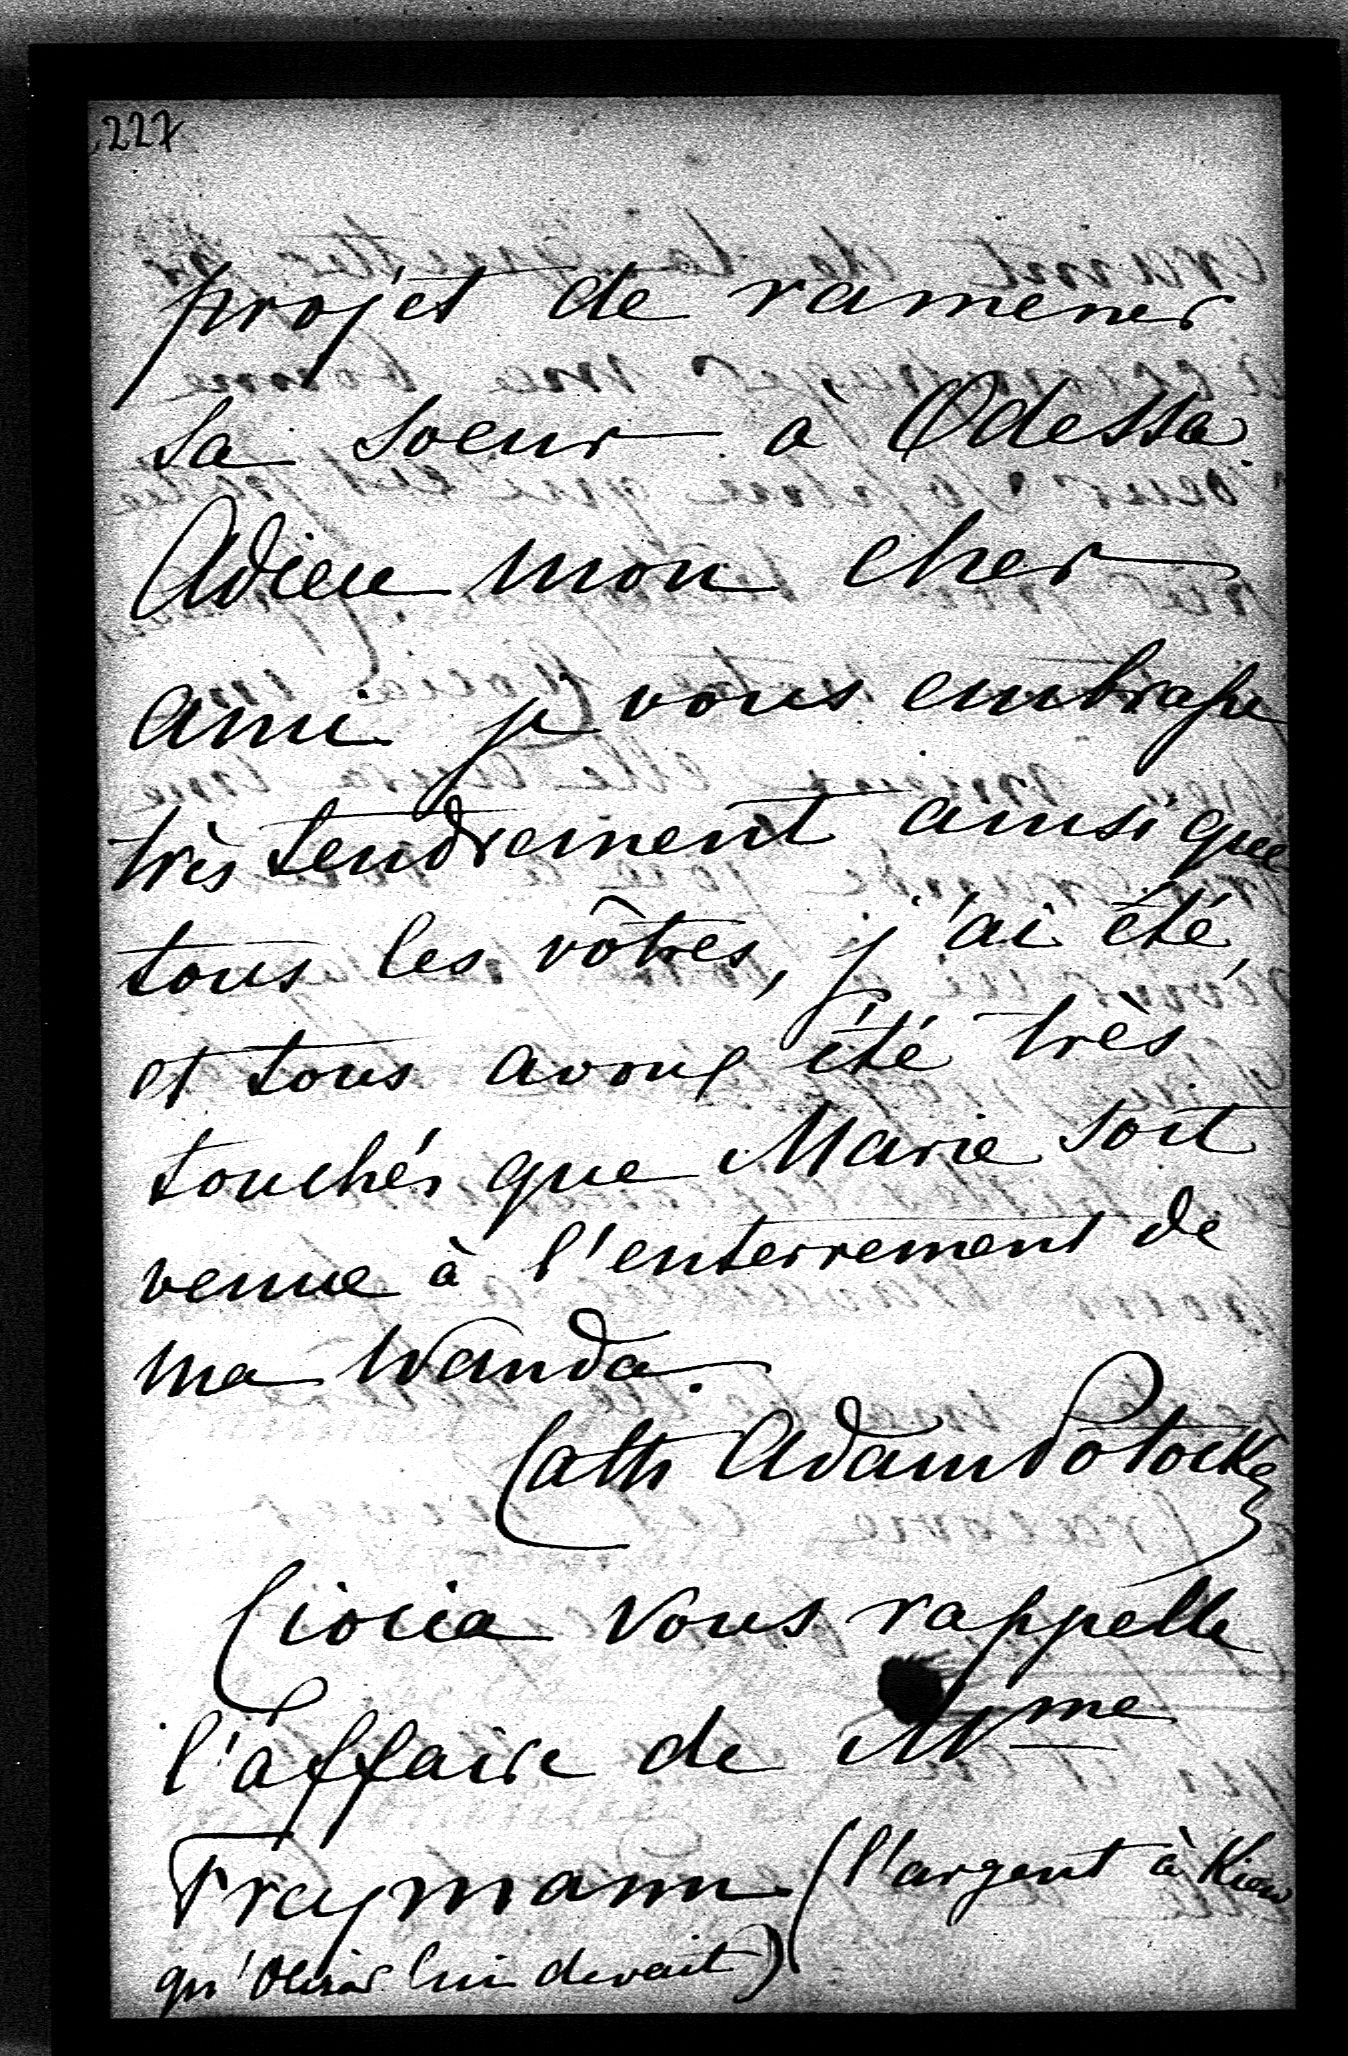 227
projet de ramener
sa soeur a Odessa
Adieu mon cher
ami je vous embrasse
très tendrement ainsi que
tous les vôtres, j'ai été,
et tous avons été très
touchés que Marie soit
venue à l'enterrement de
ma Wanda.
Cath Adam Potocka
Ciocia vous rappelle
l'affaire de Mme
Fraymann (l'argent à Kiew
qu'Olizar lui devait)